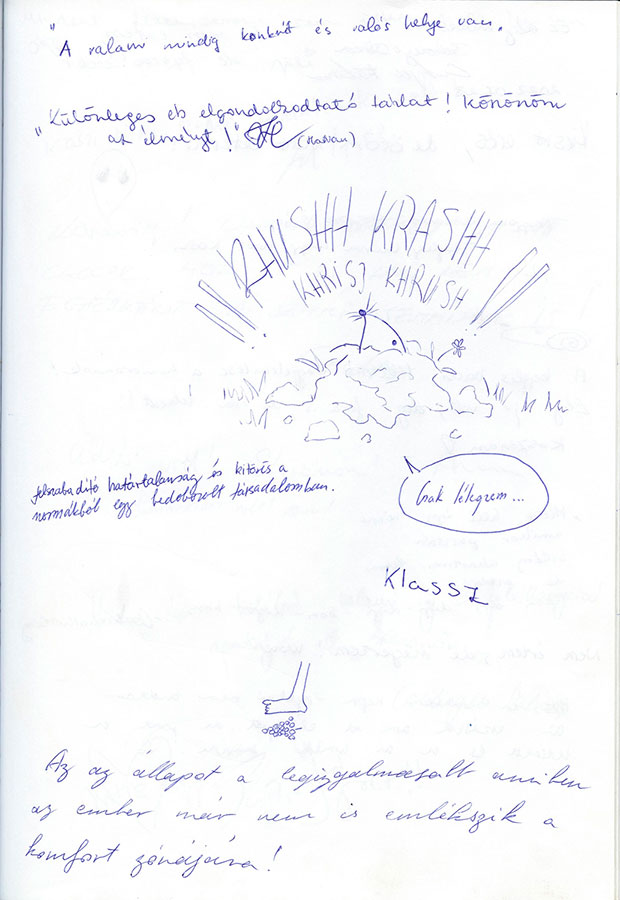 "A valami mindig konkrét és valós helye van.
"Különleges és elgondolkodtató tárlat! Köszönöm
az élményt!"
RHUSHH KRASHH
KHRISZ KHRUSH
felszabadító határtalanság és kitörés a
normákból egy bedobozolt társadalomban.
Csak lélegzem...
Klassz
Az az állapot a legizgalmasabb amiben
az ember már nem is emlékszik a
komfort zónájára!